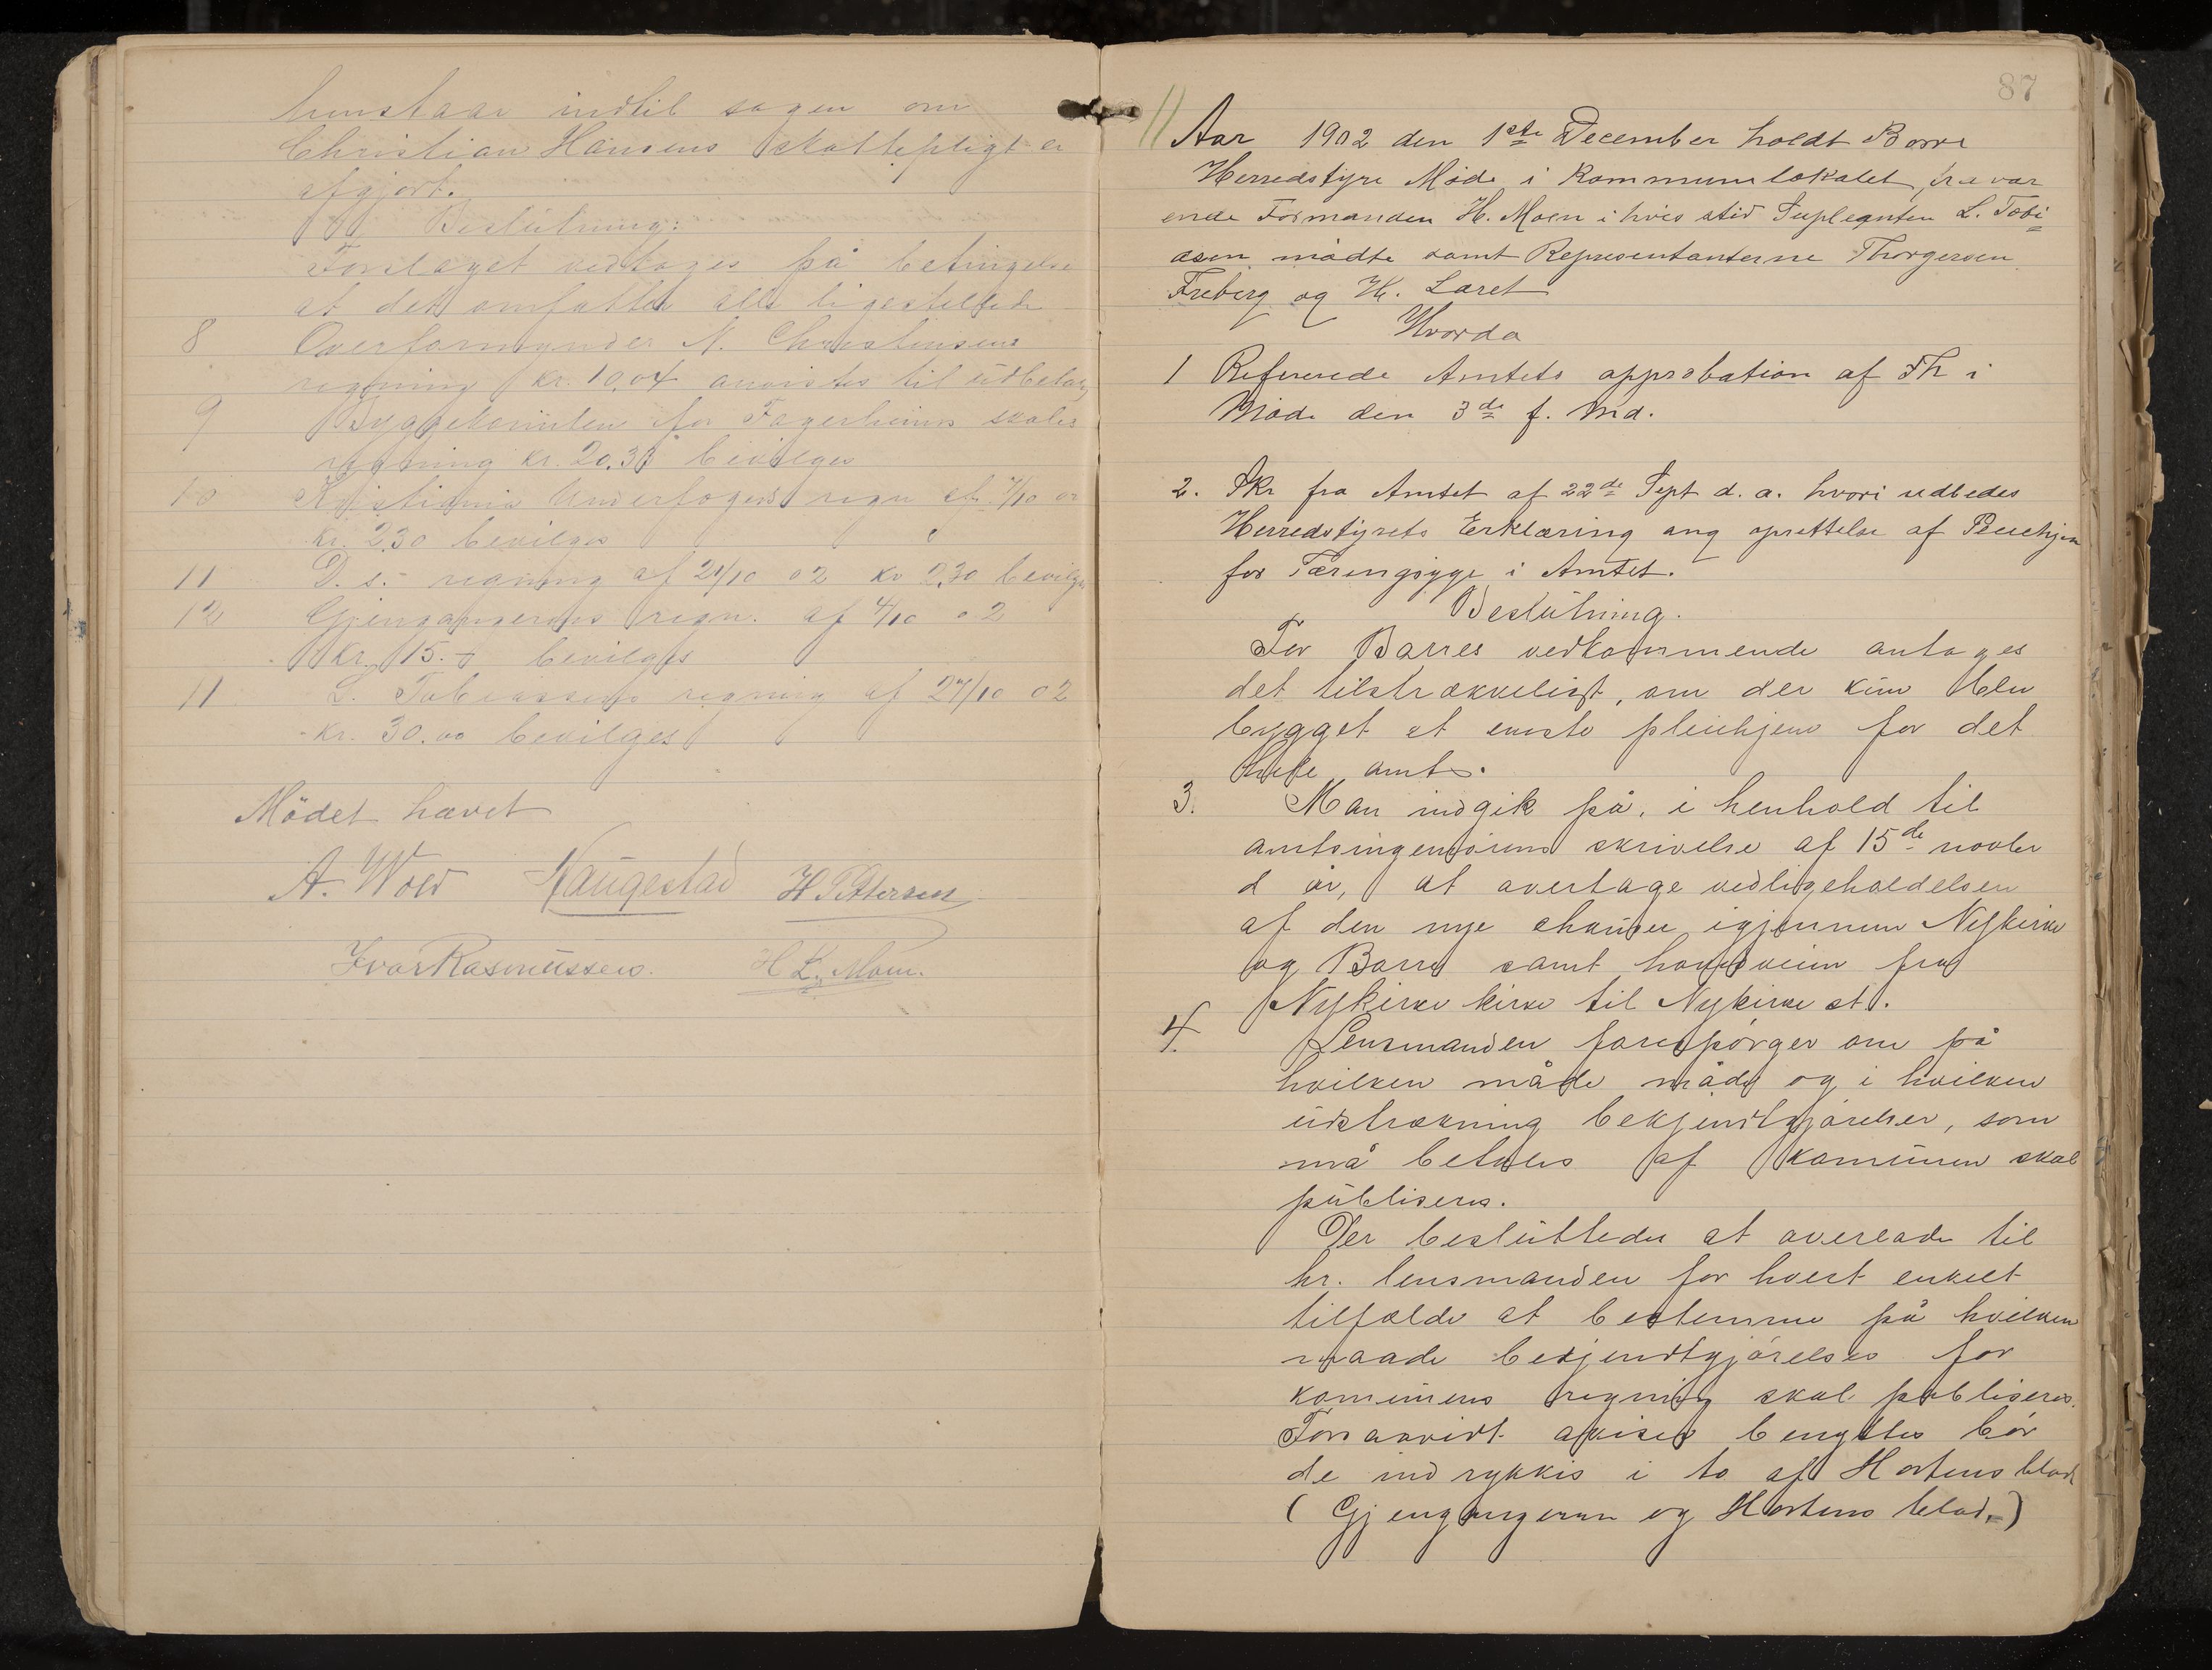 henstaar indtil sagen om
Christian Hansens skattepligt er
afgjort.
Beslutning:
Forslaget vedtages på betingelse
at det omfatter alle ligestillede
8 Overformynder N. Christensens
regning kr. 10.04 anvistes til udbetaling
9 Byggekomiteen for Fagerheims skoles
regning kr. 20.33 bevilges
10 Kristiania regn af 7/10 02
kr. 2.30 bevilges
11 D. s. regning af 21/10 02 kr 2.30 bevilges
12 Gjengangerens regn. af 4/10 02
kr. 15.- bevilges
11 L. Tobiassens regning af 27/10 02
kr. 30.00 bevilges
Mödet hævet
A. Wold Haugestad H Pettersen
Ivar Rasmussen. H L. Moen.
87
Aar 1902 den 1ste December holdt Borre
Herredstyre Møde i Kommunelokalet fravær
ende Formanden H. Moen i hvis sted Supleanten L. Tobi=
asen mødte samt Representanterne Thorgersen
Freberg og H. Løret
Hvorda
1 Refererede Amtets approbation af Fh i
Møde den 3de f. Md.
2. Skr fra Amtet af 22de Sept d. a. hvori udbedes
Herredstyrets Erklæring ang oprettelse af Pleiehjem
for Tæringsyge i Amtet.
Beslutning.
For Borres vedkommende antages
det tilstrækkeligt, om der kun blev
bygget et eneste pleiehjem for det
hele amt.
3. Man indgik på, i henhold til
amtsingeniørens skrivelse af 15de novbr
d år, at overtage vedligeholdelsen
af den nye chausse igjennem Nykirke
og Borre samt hovedveien fra
Nykirke kirke til Nykirke st.
4. Lensmanden forespørger om på
hvilken måde måde og i hvilken
udstrækning bekjendtgjørelser, som
må betales af komunen skal
publiseres.
Der besluttedes at overlade til
hr. lensmanden for hvert enkelt
tilfælde at bestemme på hvilken
maade bekjendtgjørelser for
komunens regning skal publiseres.
Forsaavidt aviser benyttes bør
de indrykkes i to af Hortens blade
(Gjengangeren og Hortens blad.)